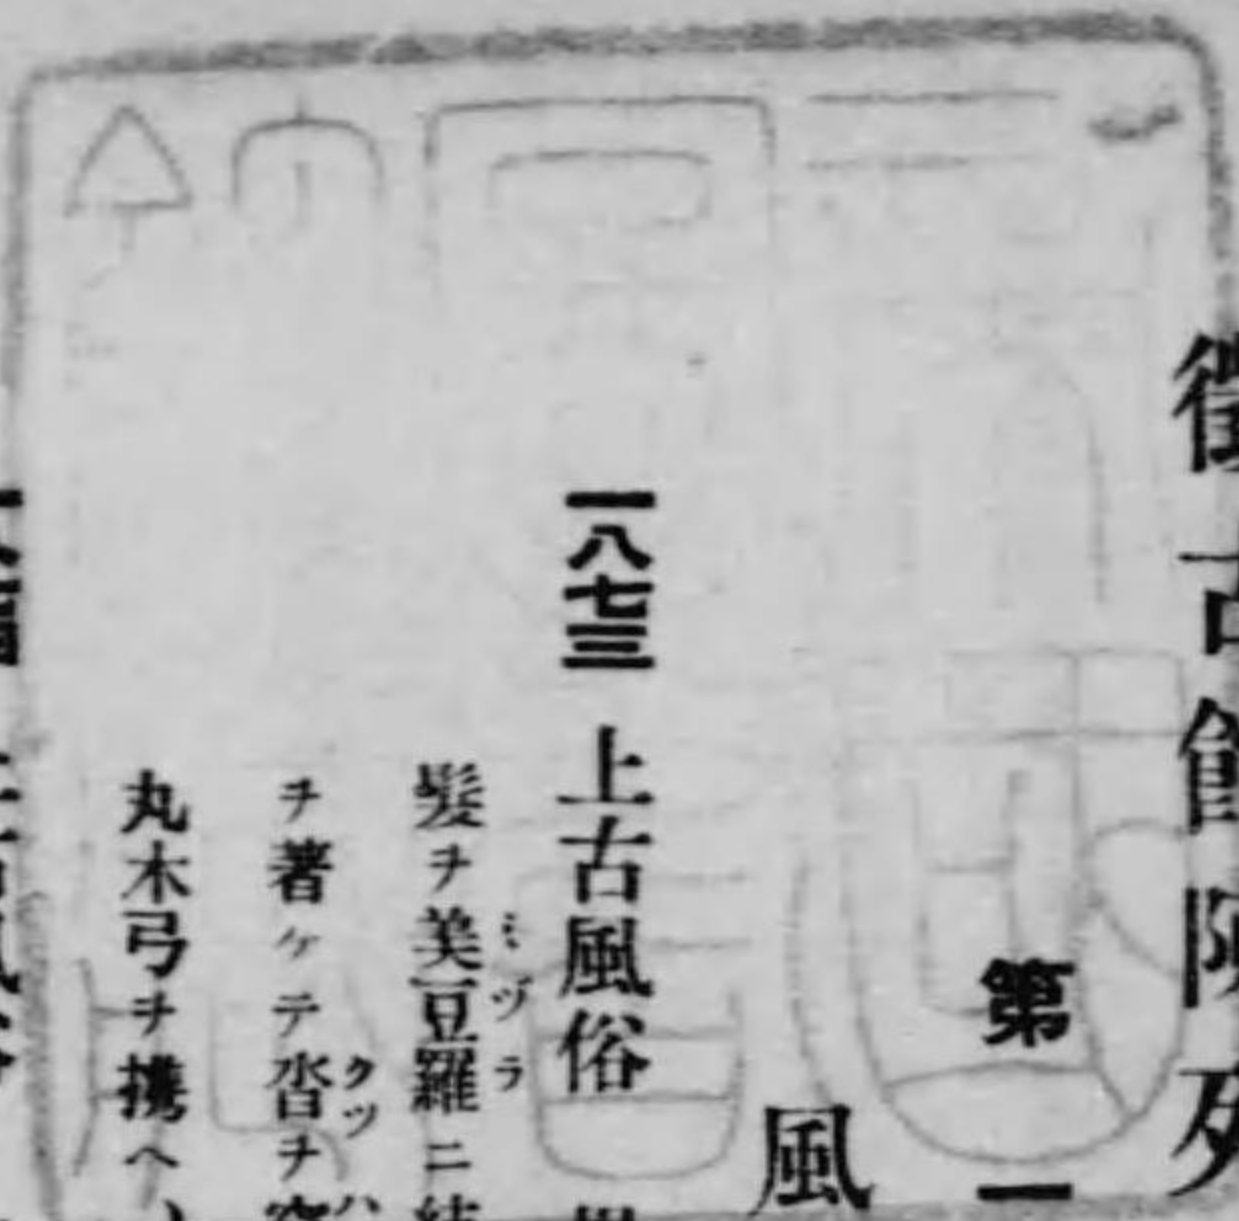 徴古館陳列
第一
風
一八七三 上古風俗
髮ヲ美豆羅ニ結
ミヅラ
ヲ著ケテ沓ヲ穿
クツ ハ
丸木弓ヲ携ヘ